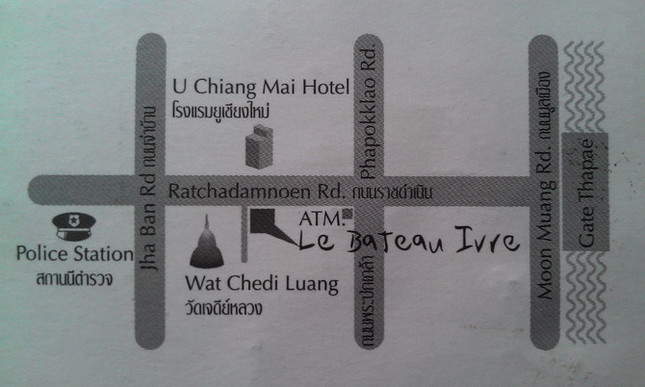 U Chiang Mai Hotel
โรงแรมยูเชียงใหม่
Jha Ban Rd ถนนจ่าบ้าน
Phapokklao Rd.
ถนนพระปกเกล้า
Moon Muang Rd. ถนนมูลเมือง
Gate Thapae
Ratchadamnoen Rd. ถนนราชดำเนิน
ATM.
Le Bateau Ivre
Police Station
สถานีตำรวจ
Wat Chedi Luang
วัดเจดีย์หลวง